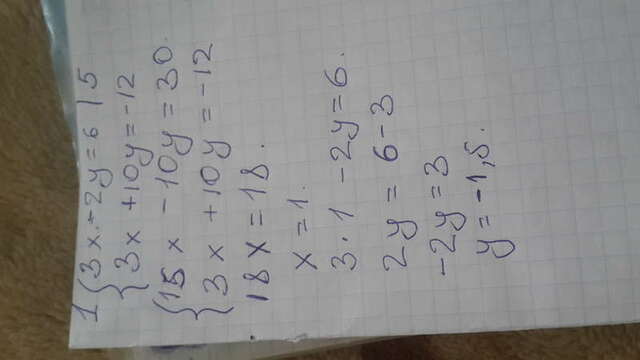 1 { 3x - 2y = 6 | 5
{ 3x + 10y = -12
{ 15x - 10y = 30.
{ 3x + 10y = -12
18x = 18.
x = 1.
3 · 1 - 2y = 6.
2y = 6 - 3
-2y = 3
y = -1,5.